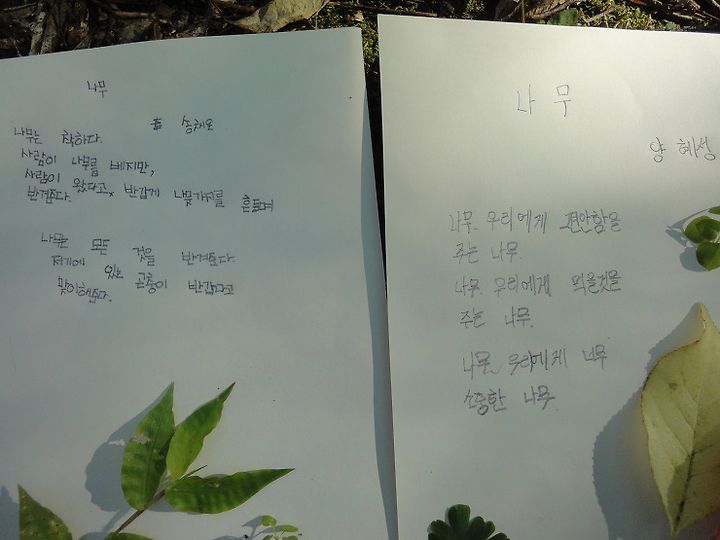 나무
송채은
나무는 착하다.
사람이 나무를 베지만,
사람이 왔다고, 반갑게 나뭇가지를 흔들며
반겨준다.
나무는 모든 것을 반겨준다.
저기에 있는 곤충이 반갑다고
맞이해준다.
나 무
양 혜성
나무. 우리에게 편안함을
주는 나무.
나무. 우리에게 먹을것을
주는 나무.
나무. 우리에게 너무
소중한 나무.